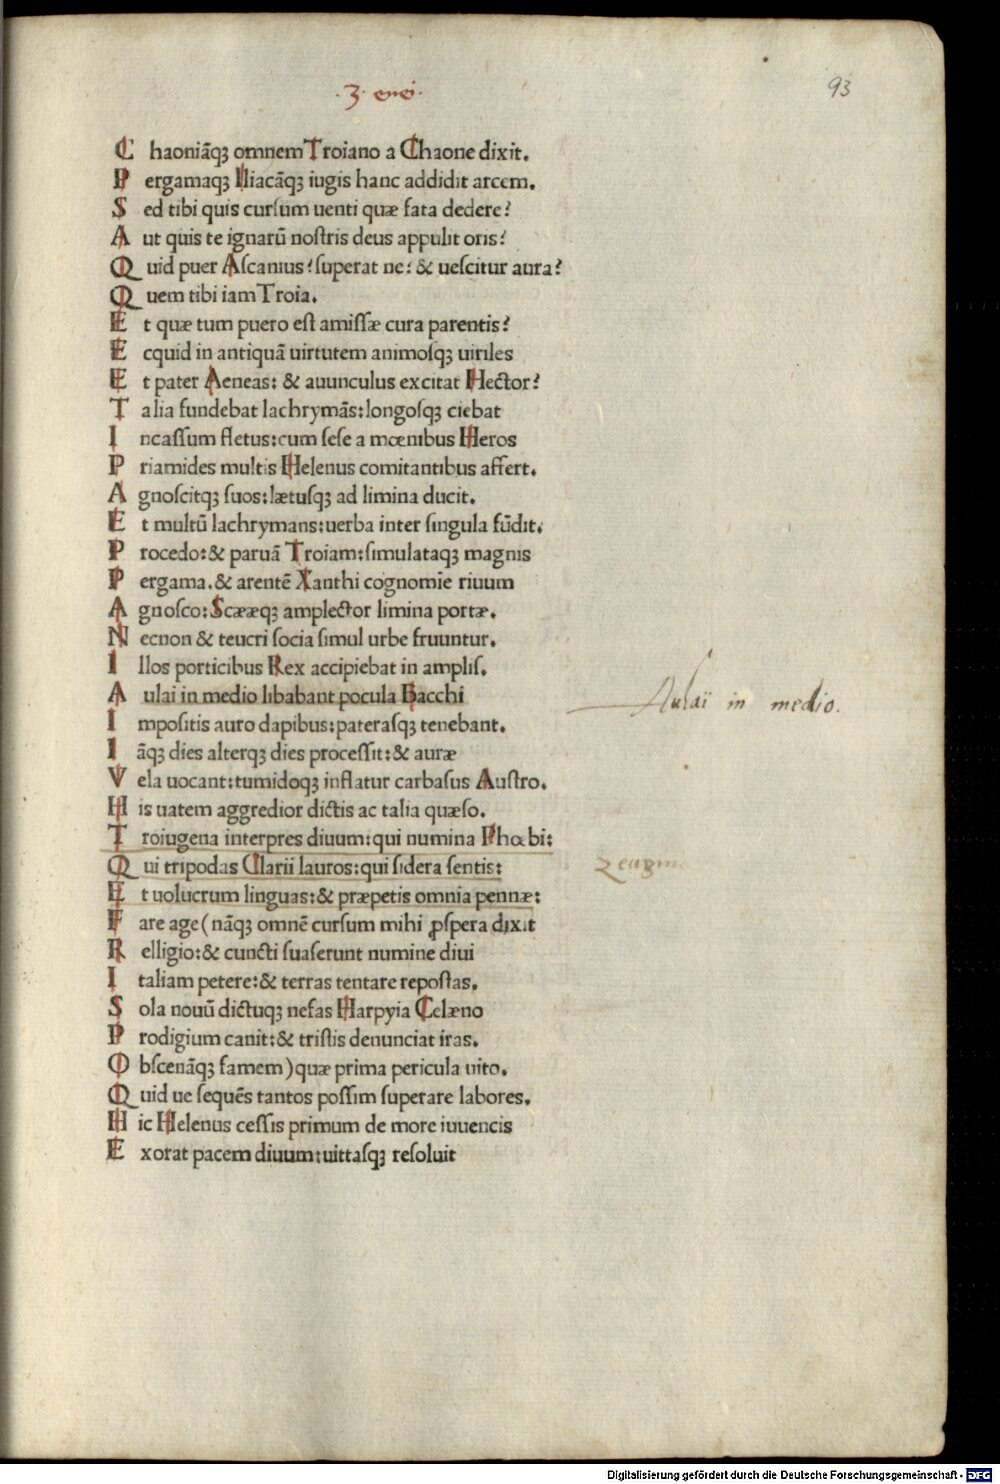 .3. enei.
93
C haoniāqꝫ omnem Troiano a Chaone dixit.
P ergamaqꝫ Iliacāqꝫ iugis hanc addidit arcem.
S ed tibi quis curſum uenti quæ fata dedere?
A ut quis te ignarū noſtris deus appulit oris?
Q uid puer Aſcanius? ſuperat ne: & ueſcitur aura?
Q uem tibi iam Troia.
E t quæ tum puero eſt amiſſæ cura parentis?
E cquid in antiquā uirtutem animoſqꝫ uiriles
E t pater Aeneas: & auunculus excitat Hector?
T alia fundebat lachrymās: longoſqꝫ ciebat
I ncaſſum fletus: cum ſeſe a mœnibus Heros
P riamides multis Helenus comitantibus affert.
A gnoſcitqꝫ ſuos: lætuſqꝫ ad limina ducit.
E t multū lachrymans: uerba inter ſingula fūdit.
P rocedo: & paruā Troiam: ſimulataqꝫ magnis
P ergama. & arentē Xanthi cognomīe riuum
A gnoſco: Scææqꝫ amplector limina portæ.
N ecnon & teucri ſocia ſimul urbe fruuntur.
I llos porticibus Rex accipiebat in ampliſ.
A ulai in medio libabant pocula Bacchi
Aulaï in medio.
I mpoſitis auro dapibus: pateraſqꝫ tenebant.
I āqꝫ dies alterqꝫ dies proceſſit: & auræ
V ela uocant: tumidoqꝫ inflatur carbaſus Auſtro.
H is uatem aggredior dictis ac talia quæſo.
T roiugena interpres diuum: qui numina Phœbi:
Q ui tripodas Clarii lauros: qui ſidera ſentis:
E t uolucrum linguas: & præpetis omnia pennæ:
F are age (nāqꝫ omnē curſum mihi ꝓſpera dixit
R elligio: & cuncti ſuaſerunt numine diui
I taliam petere: & terras tentare repoſtas.
S ola nouū dictuqꝫ nefas Harpyia Celæno
P rodigium canit: & triſtis denunciat iras.
O bſcenāqꝫ famem) quæ prima pericula uito.
Q uid ue ſequēs tantos poſſim ſuperare labores.
H ic Helenus ceſſis primum de more iuuencis
E xorat pacem diuum: uittaſqꝫ reſoluit
Digitalisierung gefördert durch die Deutsche Forschungsgemeinschaft - DFG